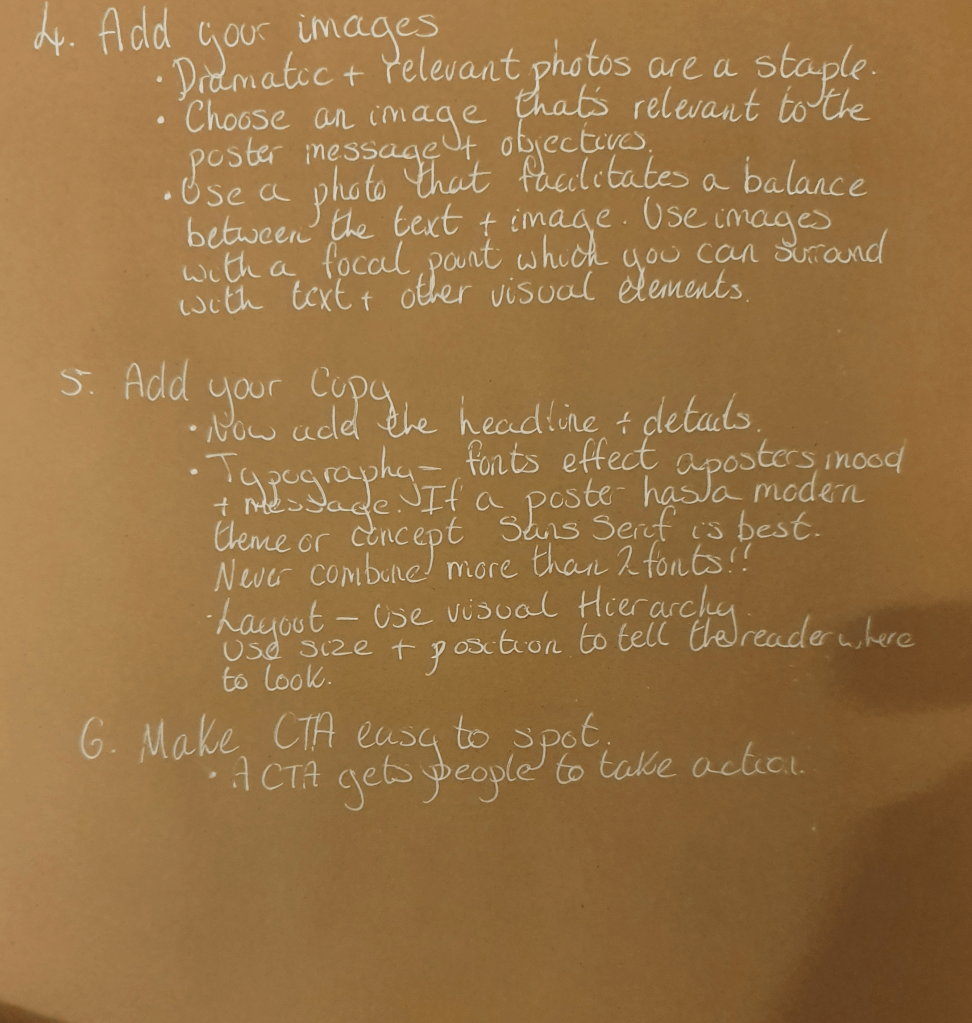 4. Add your images
• Dramatic + relevant photos are a staple.
• Choose an image that's relevant to the
poster message + objectives.
• Use a photo that facilitates a balance
between the text + image. Use images
with a focal point which you can surround
with text + other visual elements.
5. Add your Copy
• Now add the headline + details.
• Typography – fonts effect a posters mood
+ message. If a poster has a modern
theme or concept Sans Serif is best.
Never combine more than 2 fonts!!
• Layout – Use visual Hierarchy.
Use size + position to tell the reader where
to look.
6. Make CTA easy to spot.
• A CTA gets people to take action.